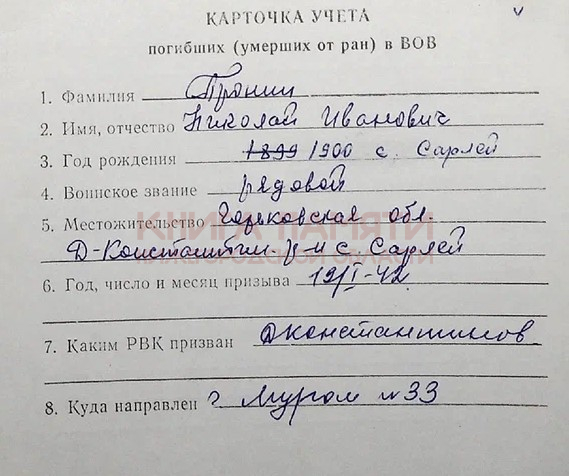 КАРТОЧКА УЧЕТА
погибших (умерших от ран) в ВОВ
1. Фамилия Пронин
2. Имя, отчество Николай Иванович
3. Год рождения 1899 1900 с. Сарлей
4. Воинское звание рядовой
5. Местожительство Горьковская обл.
Д-Константин. р-н с. Сарлей
КНИГА ПАМЯТИ
НИЖЕГОРОДСКОЙ ОБЛАСТИ
6. Год, число и месяц призыва 19/I-42
7. Каким РВК призван Дконстантинов
8. Куда направлен г Муром п 33